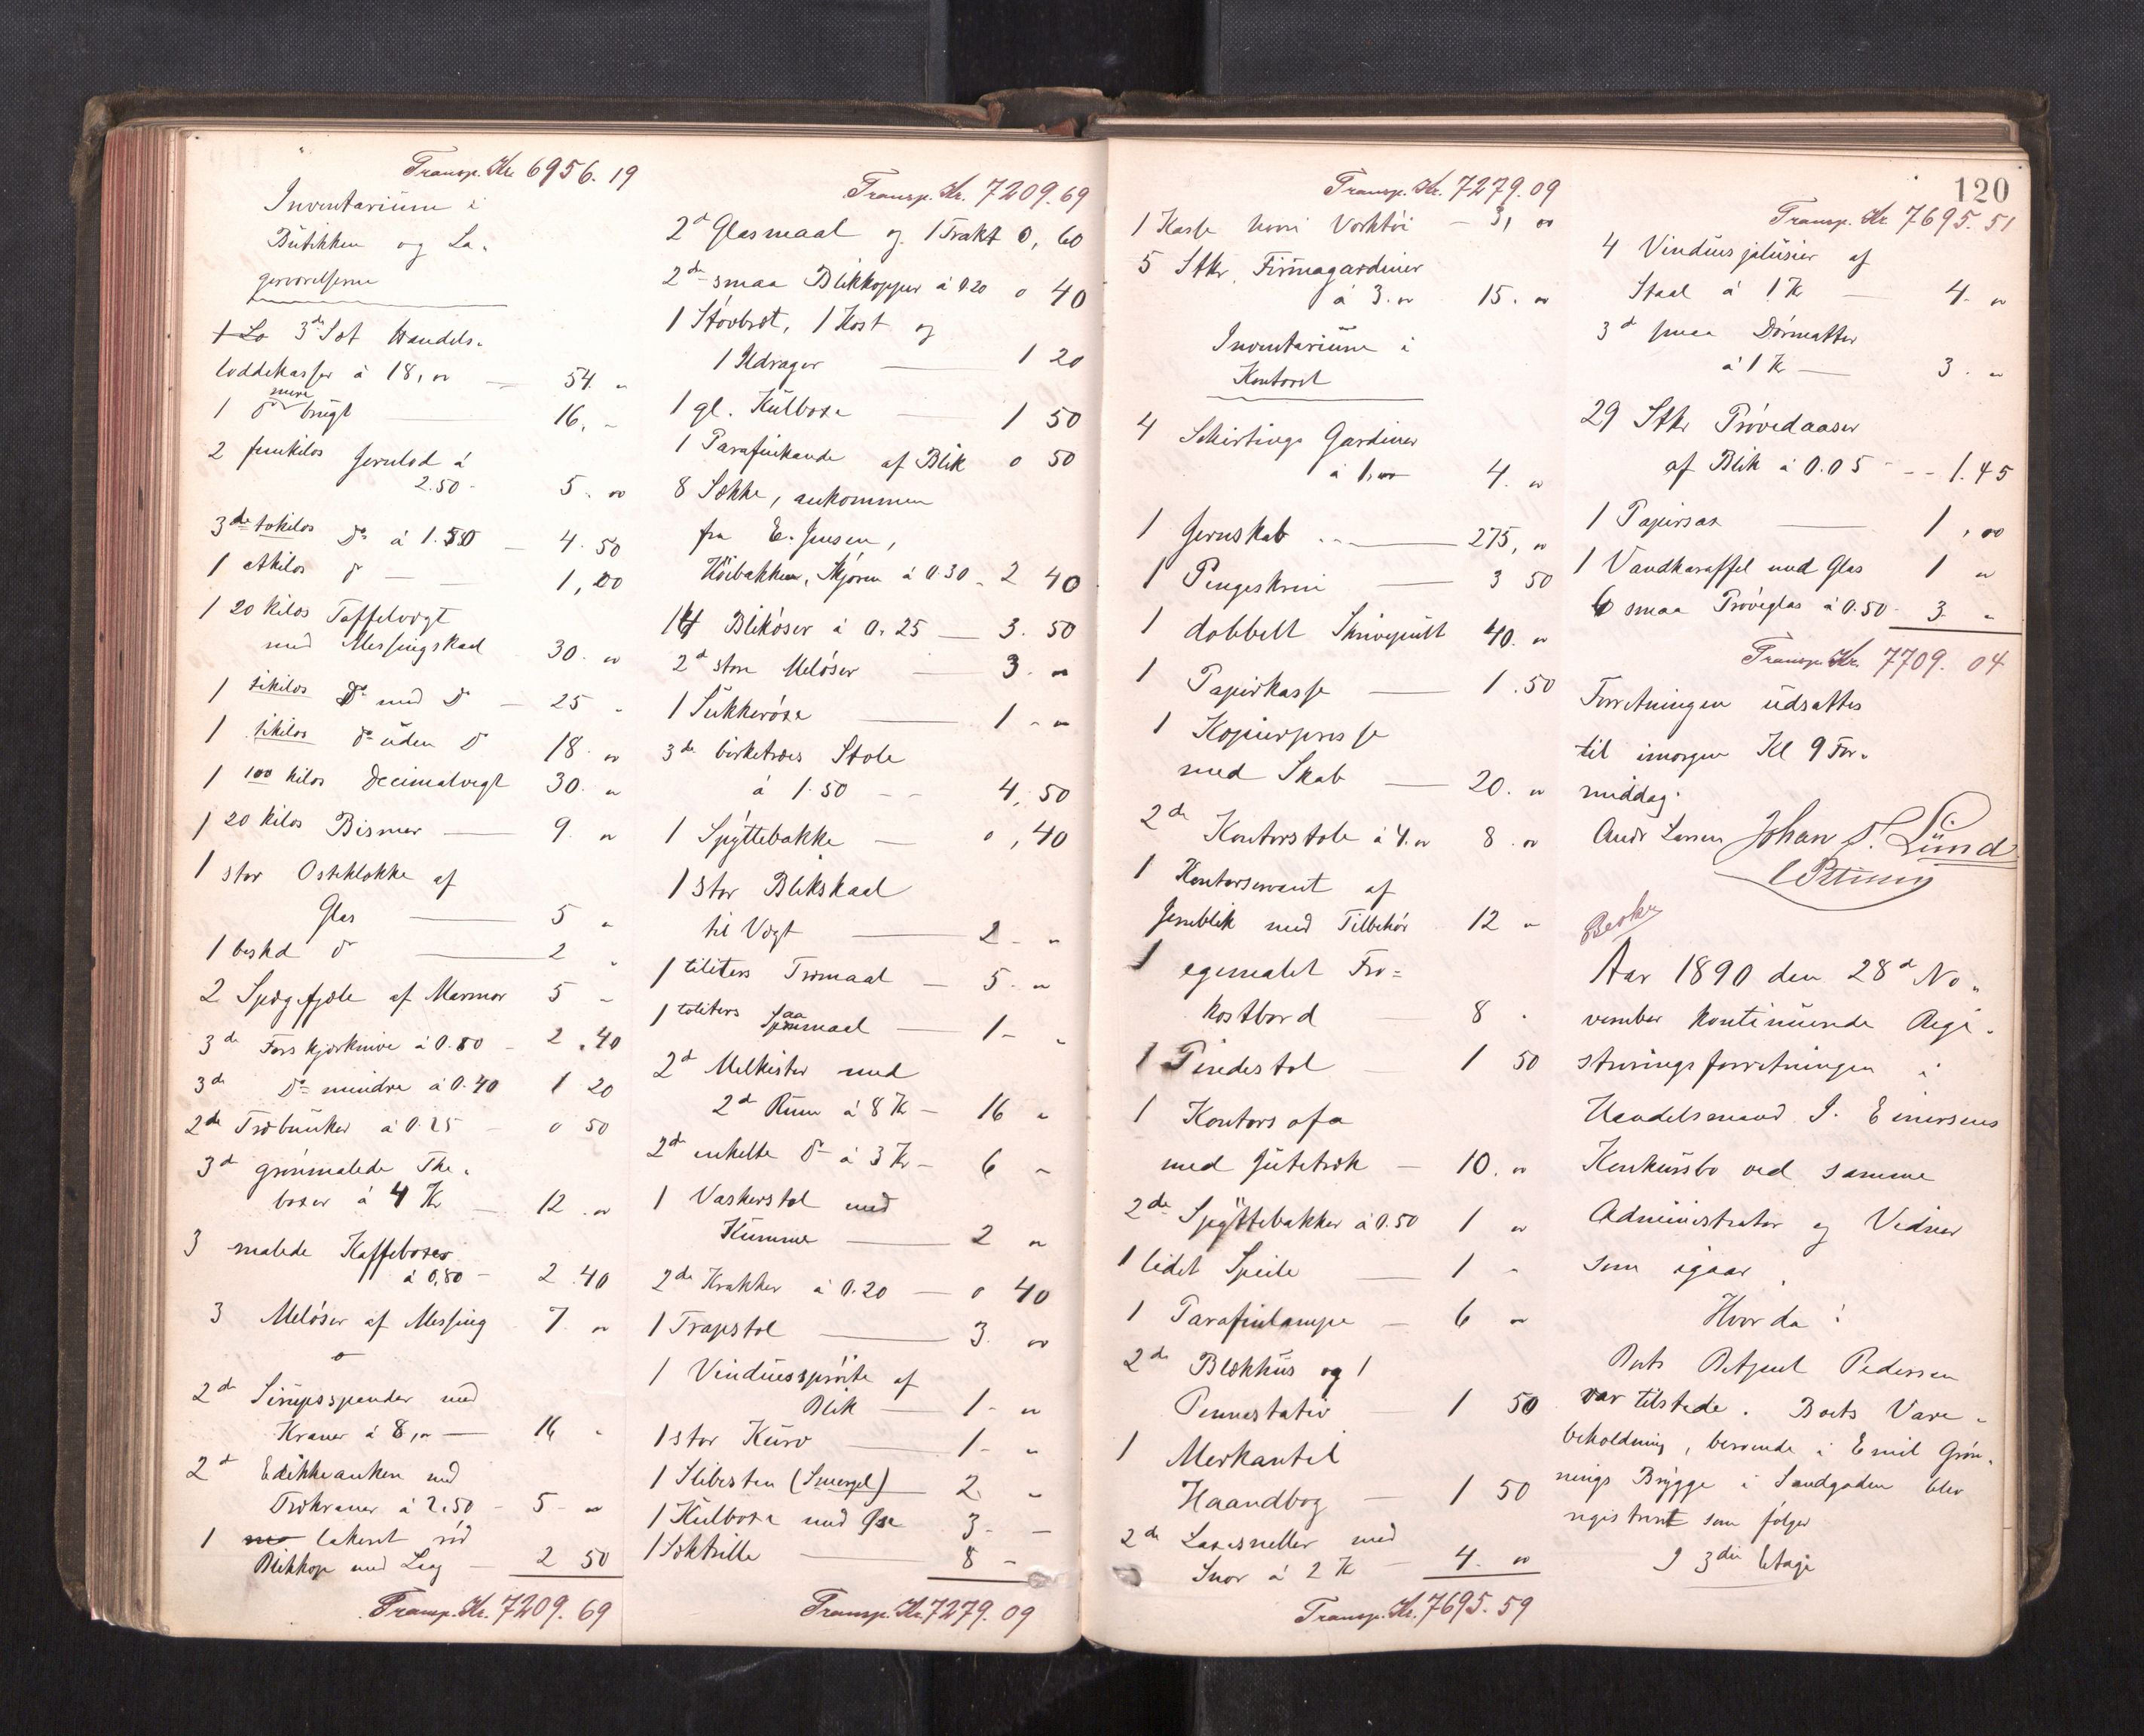 Transp. Kr. 6956.19
Inventarium i
Butikken og La-
gerværelserne
1 Lo 3de Sæt Handels-
loddekasser á 18,00 — 54. „
1 do mere brugt — 16. „
2 femkilos Jernlod á
2.50 - 5. 00
3de tokilos Do á 1.50 - 4.50
1 etkilos do — 1,00
1 20 kilos Taffelvægt
med Messingskaal 30. 00
1 tikilos Do med Do - 25 „
1 tikilos do uden Do 18. 00
1 100 kilos Decimalvægt 30. „
1 20 kilos Bismer — 9. 00
1 stor Osteklokke af
Glas — 5 „
1 beskd do — 2 „
2 Spegefjæle af Marmor 5 „
3de Forskjærknive á 0.80 - 2.40
3de Do mindre á 0.40 1 20
2de Træbunker á 0.25 - 0 50
3de grønmalede The-
boxer á 4 Kr — 12. 00
3 malede Kaffeboxer
á 0,80 - 2.40
3 Meløser af Messing 7. 00
2de Sirupsspender med
Kraner á 8,00 — 16 „
2de Edikkeankere med
Trækraner á 2.50 - 5 - 00
1 lakeret rød
Blikkop med Laag — 2 50
Transp. Kr. 7209.69
Transp. Kr. 7209.69
2de Glasmaal og 1 Trakt 0,60
2de smaa Blikkopper á 0.20 0 40
1 Støvbræt, 1 Kost og
1 Ildrager — 1 20
1 gl. Kulboxe — 1 50
1 Parafinkande af Blik 0 50
8 Sække, ankommen
fra E. Jensen,
Høibakken, Skjøren á 0.30 - 2 40
14 Blikøser á 0.25 — 3.50
2de store Meløser — 3. 00
1 Sukkerøse — 1 - „
3de birketræes Stole
á 1.50 - - 4,50
1 Spyttebakke — 0,40
1 stor Blikskaal
til Vægt — 2 - „
1 tiliters Træmaal — 5. 00
1 toliters maal — 1 - „
2de Melkister med
2de Rum á 8 Kr — 16 „
2de enkelte do á 3 Kr — 6 „
1 Vaskerstol med
Kumme — 2 „
2de Krakker á 0.20 — 0 40
1 Trapstol — 3. 00
1 Vinduessprøite af
Blik — 1 - „
1 stor Kurv — 1 - „
1 Slibesten (Smergel) — 2 „
1 Kulboxe med Øse 3. —
1 Sæktrille — 8 -
Transp. Kr. 7279.09
Transp. Kr. 7279.09
1 Kasse hvori Værktøi — 3,00
5 Stkr. Firmagardiner
á 3.00 15. 00
Inventarium i
Kontoret
4 Schirtings Gardiner
á 1,00 4. 00
1 Jernskab — 275, 00
1 Pengeskrin — 3 50
1 dobbelt Skrivepult 40. 00
1 Papirkasse — 1.50
1 Kopierpresse
med Skab — 20. 00
2de Kontorstole á 4.00 8. 00
1 Kontorservant af
Jernblik med Tilbehør 12 „
1 egemalet Fro-
kostbord — 8 -
1 Pindestol — 1 50
1 Kontorsofa
med Jutetræk — 10. 00
2de Spyttebakker á 0.50 1 „
1 lidet Speile — 1 „
1 Parafinlampe — 6 „
2de Blækhus og 1
Pennestativ — 1 50
1 Merkantil
Haandbog — 1 50
2de Laxesneller med
Snor á 2 Kr — 4. 00
Transp. Kr. 7695.59
120
Transp. Kr 7695.51
4 Vinduesjalusier af
Staal á 1 Kr — 4. 00
3de smaa Dørmatter
á 1 Kr — 3. „
29 Stkr Prøvedaaser
af Blik á 0.05 - - 1.45
1 Papirsax — 1,00
1 Vandkaraffel med Glas 1 „
6 smaa Prøveglas á 0.50 - 3. „
Transp. Kr. 7709.04
Forretningen udsattes
til imorgen Kl 9 For-
middag.
Andr Larsen Johan S. Lund
Aar 1890 den 28de No-
vember kontinuerede Regi-
streringsforretningen i
Handelsmand J. Einersens
Konkursbo ved samme
Administrator og Vidner
som igaar.
Hvorda:
Boets Betjent Pedersen
var tilstede. Boets Vare-
beholdning, beroende i Emil Grøn-
nings Brygge i Sandgaden blev
registreret som følger
I 3die Etage